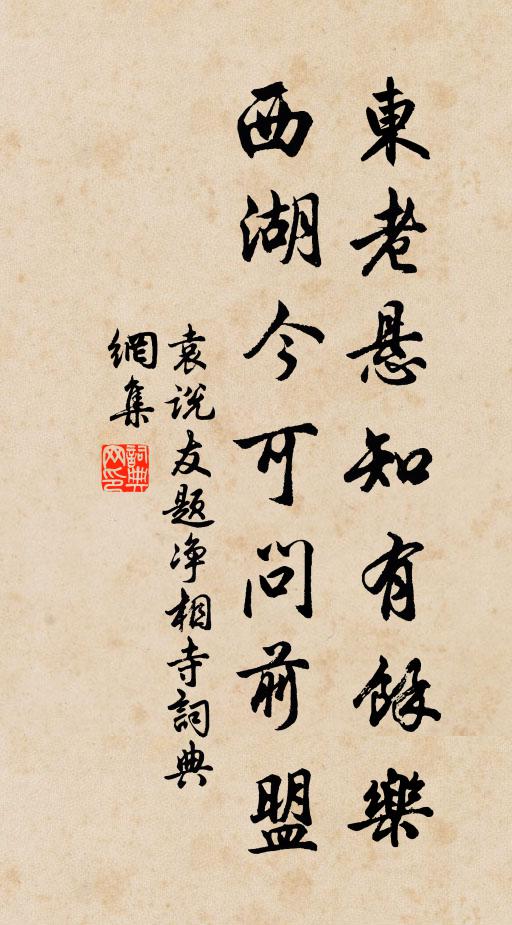 東老悬知有餘樂
西湖今可问前盟
袁说友题净相寺詞典
網集
詞典
网印